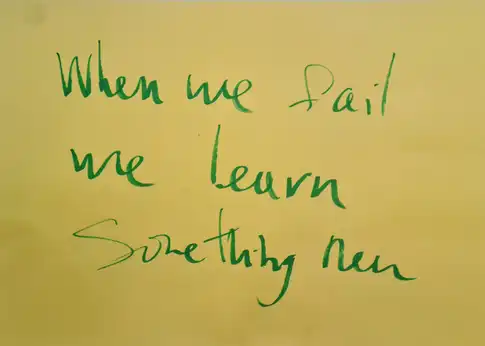 When we fail
we learn
Something new